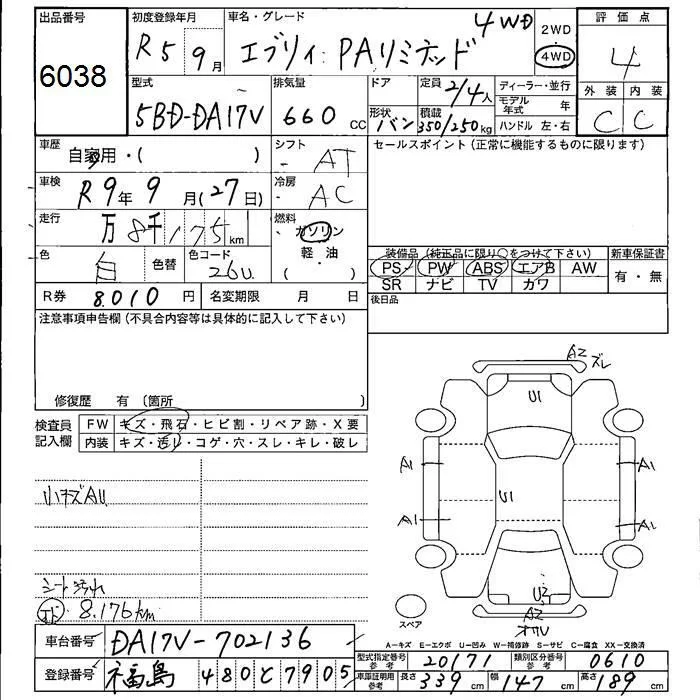 出品番号
6038
初度登録年月
R5 9月
車名・グレード
エブリィ PAリミテッド 4WD
2WD
4WD
評価点
4
外装 内装
C C
型式
5BD-DA17V
排気量
660 cc
ドア
形状
バン
定員
2/4人
積載
350/250kg
ディーラー・並行
モデル年式 年
ハンドル 左・右
車歴
自家用・( )
シフト
AT
車検
R9年9月(27日)
冷房
AC
走行
万8千175km
燃料
ガソリン
軽・油
( )
色
白
色替
色コード
26U
R券 8,010円
名変期限 月 日
セールスポイント(正常に機能するものに限ります)
装備品(純正品に限り○をつけて下さい)
PS PW ABS エアB AW
SR ナビ TV カワ
新車保証書
有・無
後日品
注意事項申告欄(不具合内容等は具体的に記入して下さい)
修復歴 有(箇所
検査員記入欄
FW キズ・飛石・ヒビ割・リペア跡・X要
内装 キズ・汚レ・コゲ・穴・スレ・キレ・破レ
小キズAU
シート汚れ
8.176km
AZ ズレ
U1
A1 A1
U1
A1 A1
U2
AZ
スペア
A=キズ E=エクボ U=凹み W=補修跡 S=サビ C=腐食 XX=交換済
車台番号 DA17V-702136
登録番号 福島 480 と 7905
型式指定番号 参考 20171
類別区分番号 参考 0610
車庫証明用 参考 長さ339cm 幅147cm 高さ189cm